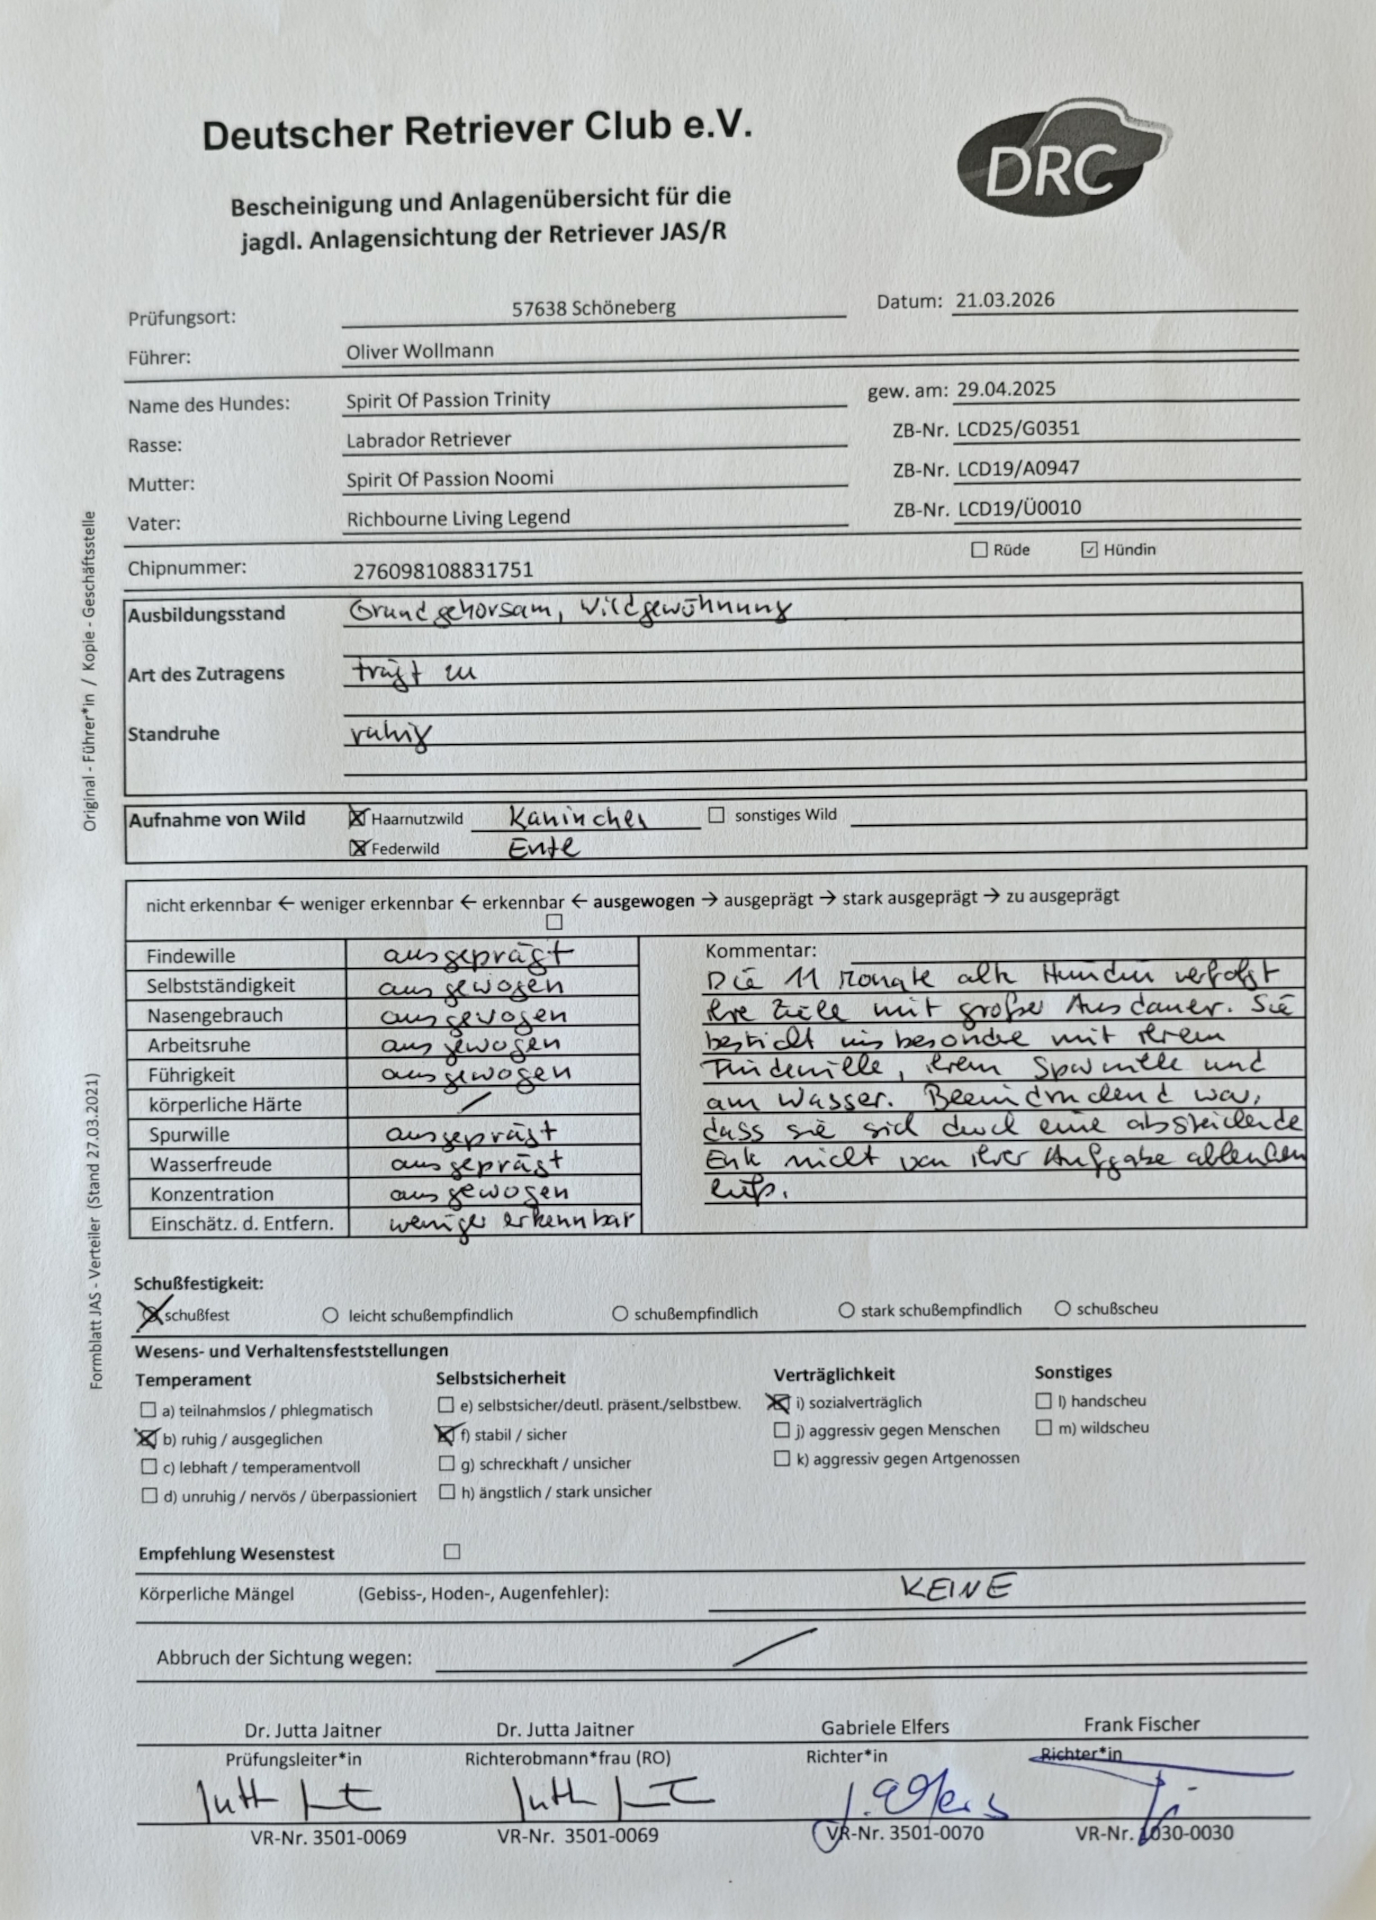 Deutscher Retriever Club e.V.
DRC
Bescheinigung und Anlagenübersicht für die
jagdl. Anlagensichtung der Retriever JAS/R
Prüfungsort: 57638 Schöneberg Datum: 21.03.2026
Führer: Oliver Wollmann
Name des Hundes: Spirit Of Passion Trinity gew. am: 29.04.2025
Rasse: Labrador Retriever ZB-Nr. LCD25/G0351
Mutter: Spirit Of Passion Noomi ZB-Nr. LCD19/A0947
Vater: Richbourne Living Legend ZB-Nr. LCD19/Ü0010
☐ Rüde ☑ Hündin
Chipnummer: 276098108831751
Ausbildungsstand Grundgehorsam, Wildgewöhnung
Art des Zutragens trägt zu
Standruhe ruhig
Aufnahme von Wild ☒ Haarnutzwild Kaninchen ☐ sonstiges Wild
☒ Federwild Ente
nicht erkennbar ← weniger erkennbar ← erkennbar ← ausgewogen → ausgeprägt → stark ausgeprägt → zu ausgeprägt
☐
Findewille ausgeprägt
Selbstständigkeit ausgewogen
Nasengebrauch ausgewogen
Arbeitsruhe ausgewogen
Führigkeit ausgewogen
körperliche Härte /
Spurwille ausgeprägt
Wasserfreude ausgeprägt
Konzentration ausgewogen
Einschätz. d. Entfern. weniger erkennbar
Kommentar:
Die 11 Monate alte Hündin verfolgt
ihre Ziele mit großer Ausdauer. Sie
besticht insbesondre mit ihrem
Findewille, ihrem Spurwille und
am Wasser. Beeindruckend war,
dass sie sich durch eine abstreichende
Ente nicht von ihrer Aufgabe ablenken
ließ.
Schußfestigkeit:
☒ schußfest ○ leicht schußempfindlich ○ schußempfindlich ○ stark schußempfindlich ○ schußscheu
Wesens- und Verhaltensfeststellungen
Temperament Selbstsicherheit Verträglichkeit Sonstiges
☐ a) teilnahmslos / phlegmatisch ☐ e) selbstsicher/deutl. präsent./selbstbew. ☒ i) sozialverträglich ☐ l) handscheu
☒ b) ruhig / ausgeglichen ☒ f) stabil / sicher ☐ j) aggressiv gegen Menschen ☐ m) wildscheu
☐ c) lebhaft / temperamentvoll ☐ g) schreckhaft / unsicher ☐ k) aggressiv gegen Artgenossen
☐ d) unruhig / nervös / überpassioniert ☐ h) ängstlich / stark unsicher
Empfehlung Wesenstest ☐
Körperliche Mängel (Gebiss-, Hoden-, Augenfehler): KEINE
Abbruch der Sichtung wegen: /
Dr. Jutta Jaitner Dr. Jutta Jaitner Gabriele Elfers Frank Fischer
Prüfungsleiter*in Richterobmann*frau (RO) Richter*in Richter*in
VR-Nr. 3501-0069 VR-Nr. 3501-0069 VR-Nr. 3501-0070 VR-Nr. 1030-0030
Original - Führer*in / Kopie - Geschäftsstelle
Formblatt JAS - Verteiler (Stand 27.03.2021)